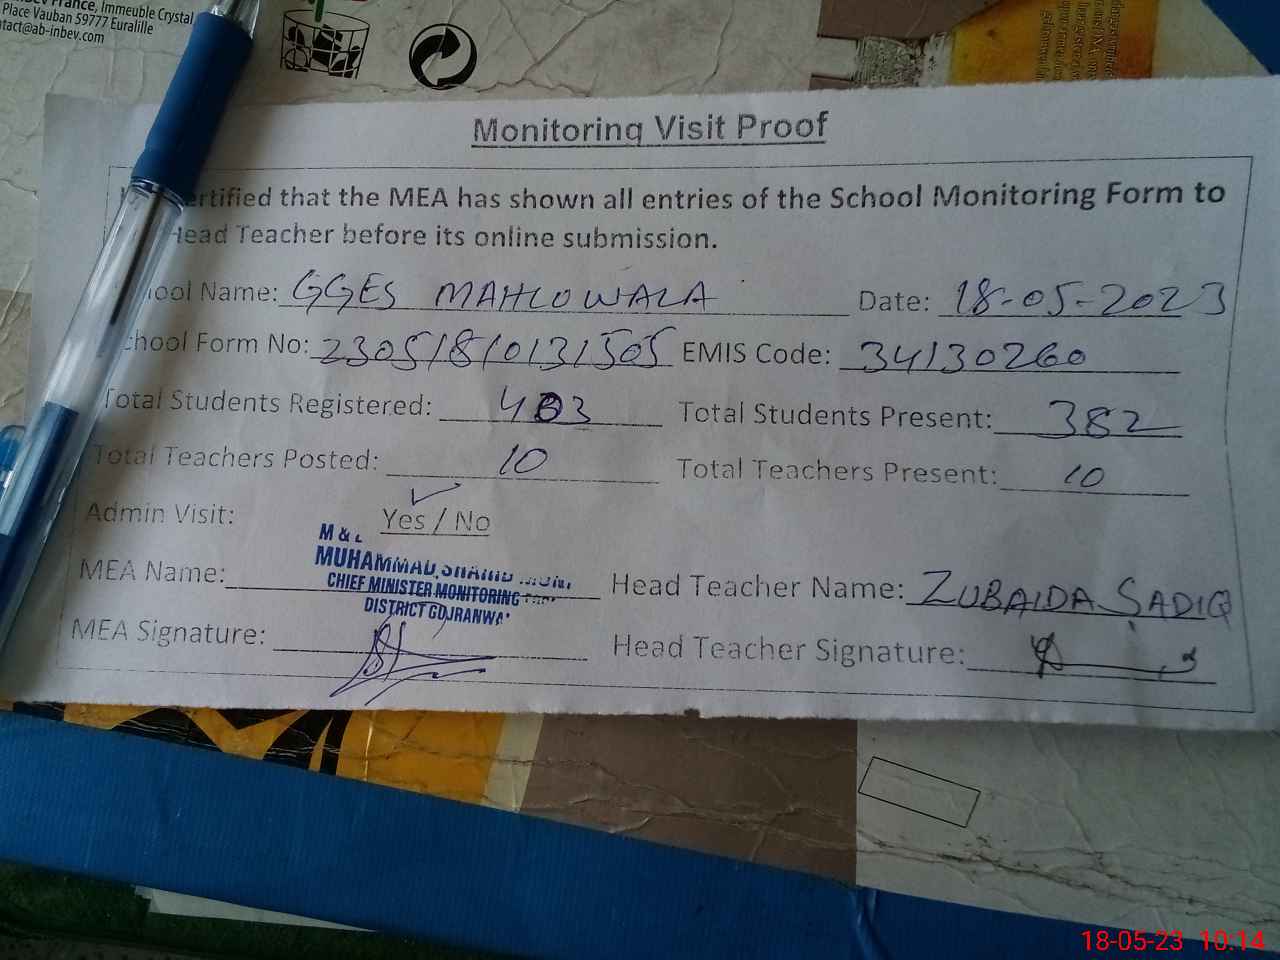 France, Immeuble Crystal
Place Vauban 59777 Euralille
tact@ab-inbev.com
Monitoring Visit Proof
ertified that the MEA has shown all entries of the School Monitoring Form to
Head Teacher before its online submission.
ool Name: GGES MAHLOWALA Date: 18-05-2023
chool Form No: 23051810131505 EMIS Code: 34130260
Total Students Registered: 403 Total Students Present: 382
Total Teachers Posted: 10 Total Teachers Present: 10
Admin Visit: Yes / No
M & E
MUHAMMAD SHAHID
CHIEF MINISTER MONITORING
DISTRICT GUJRANWA
MEA Name: Head Teacher Name: ZUBAIDA SADIQ
MEA Signature: Head Teacher Signature:
18-05-23 10:14